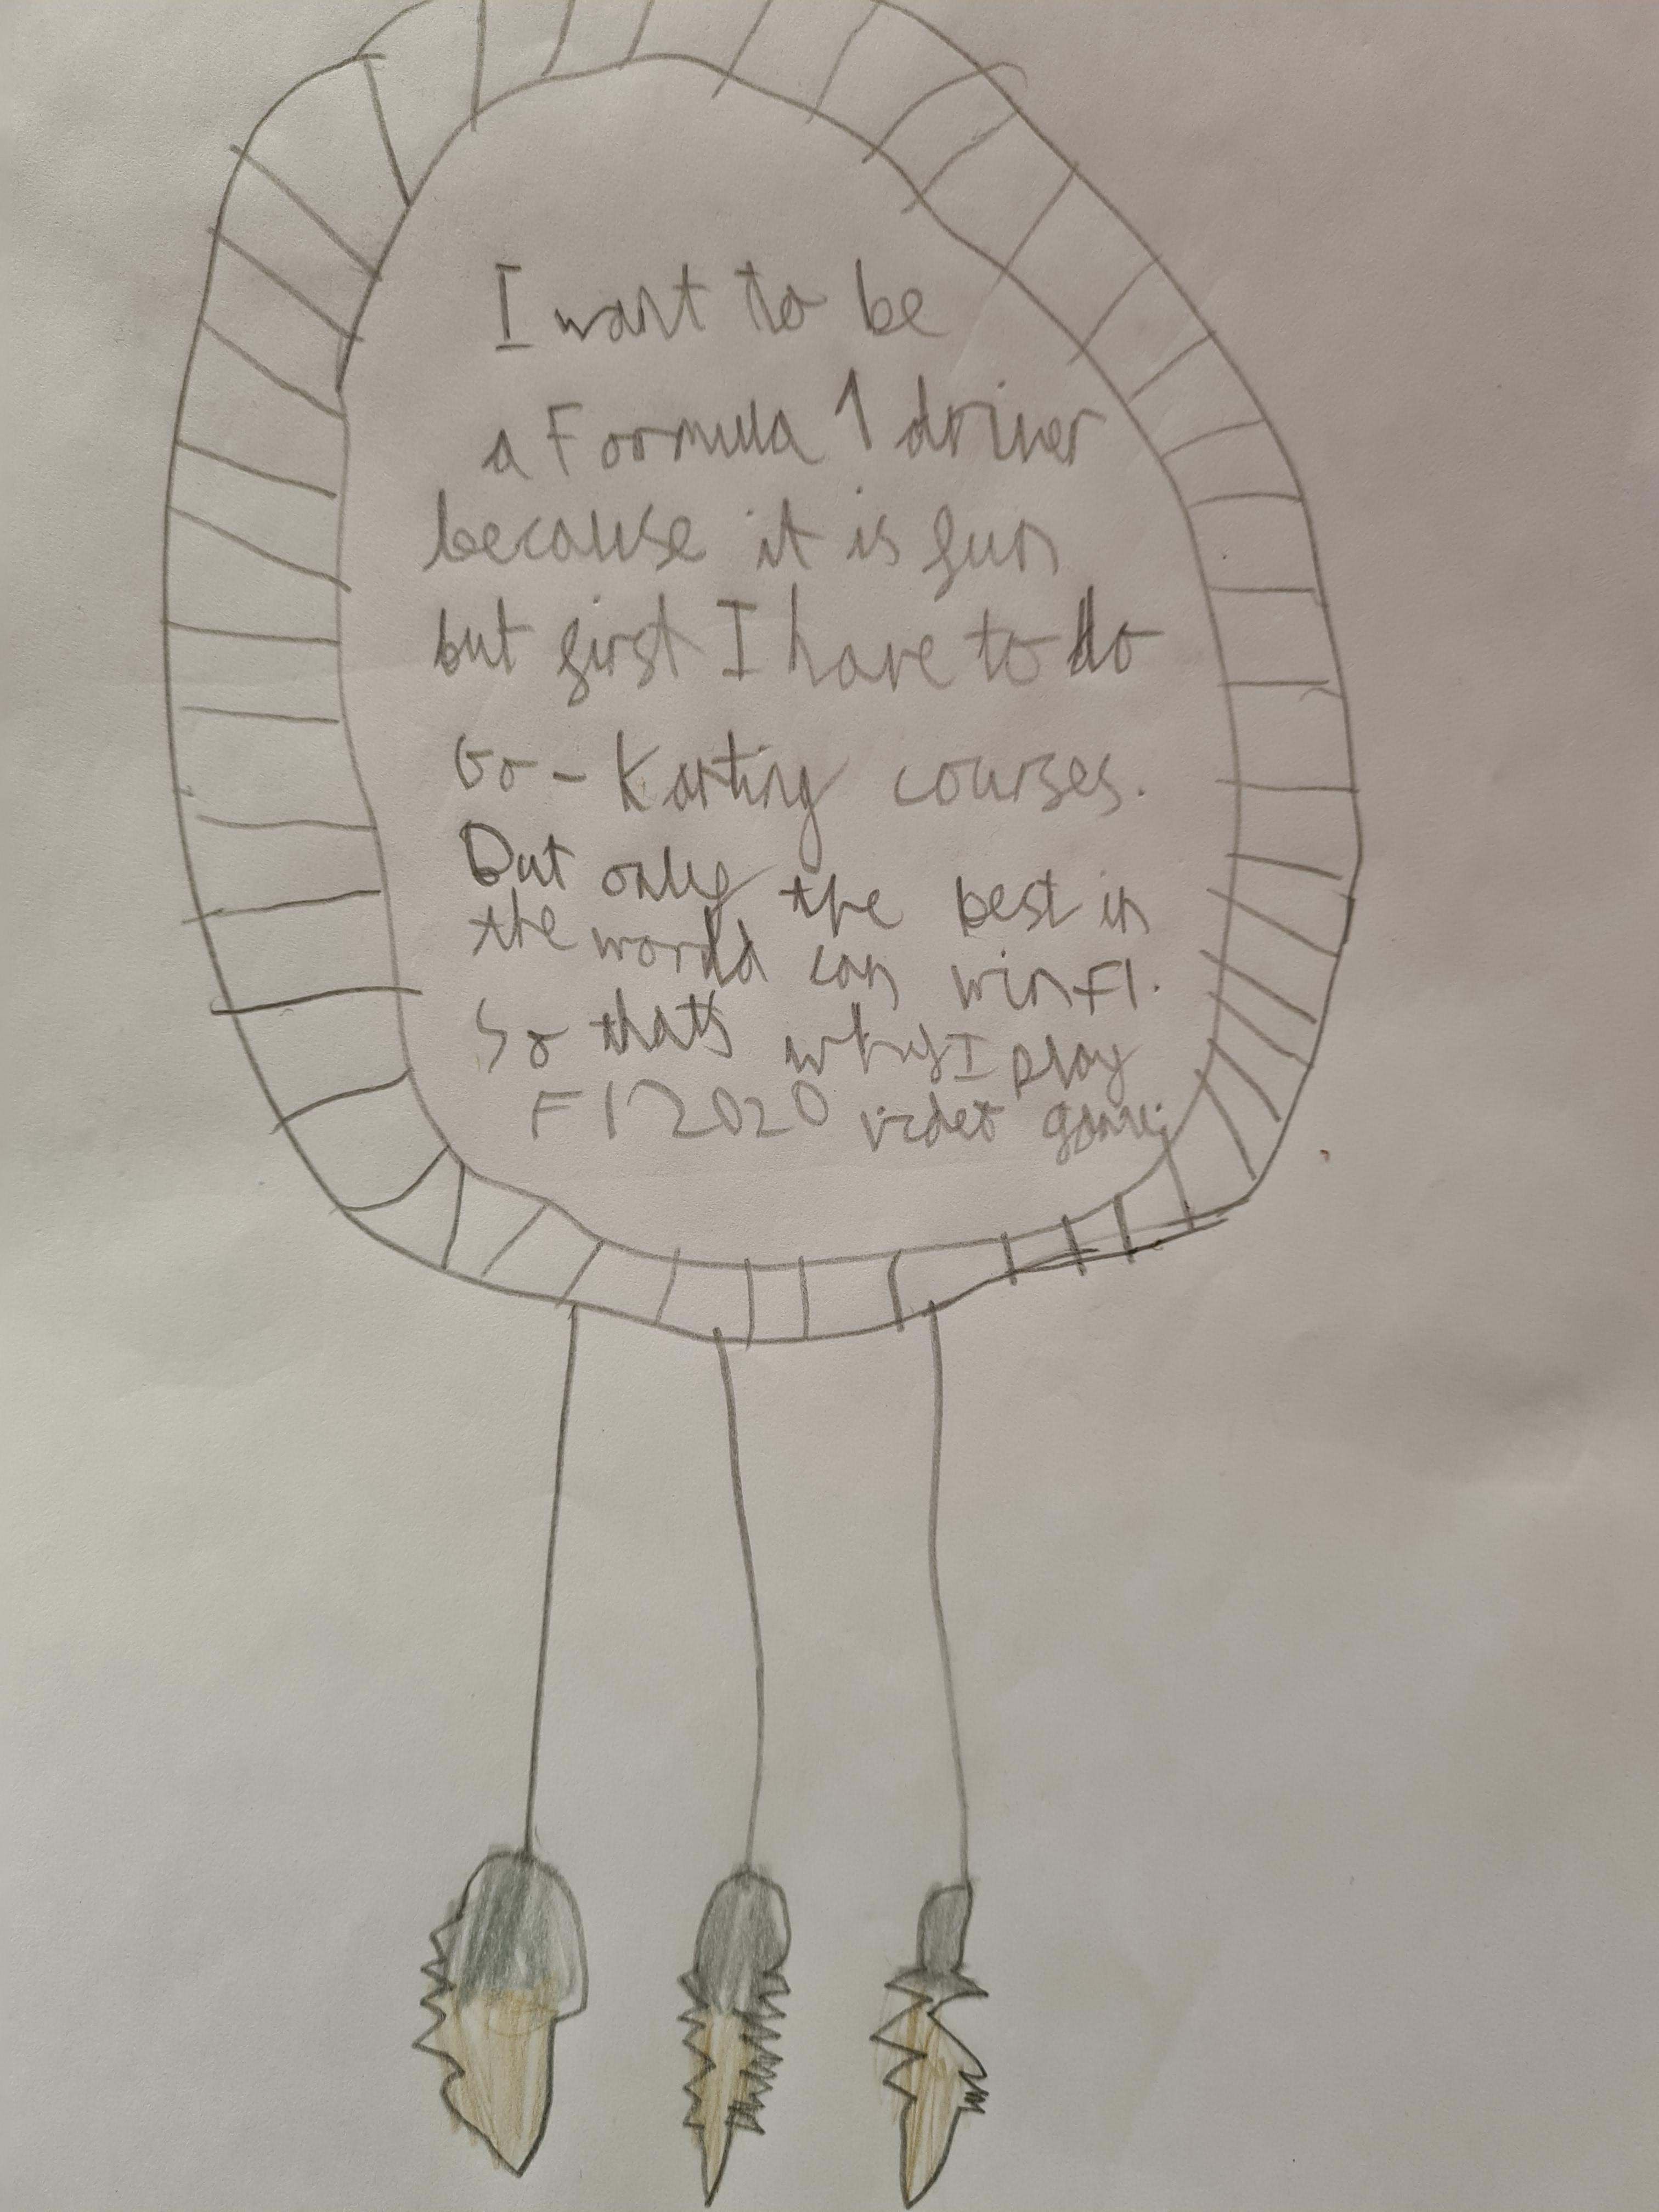 I want to be
a Formula 1 driver
because it is fun
but first I have to do
Go-Karting courses.
But only the best in
the world can win F1.
So thats why I play
F1 2020 video game.